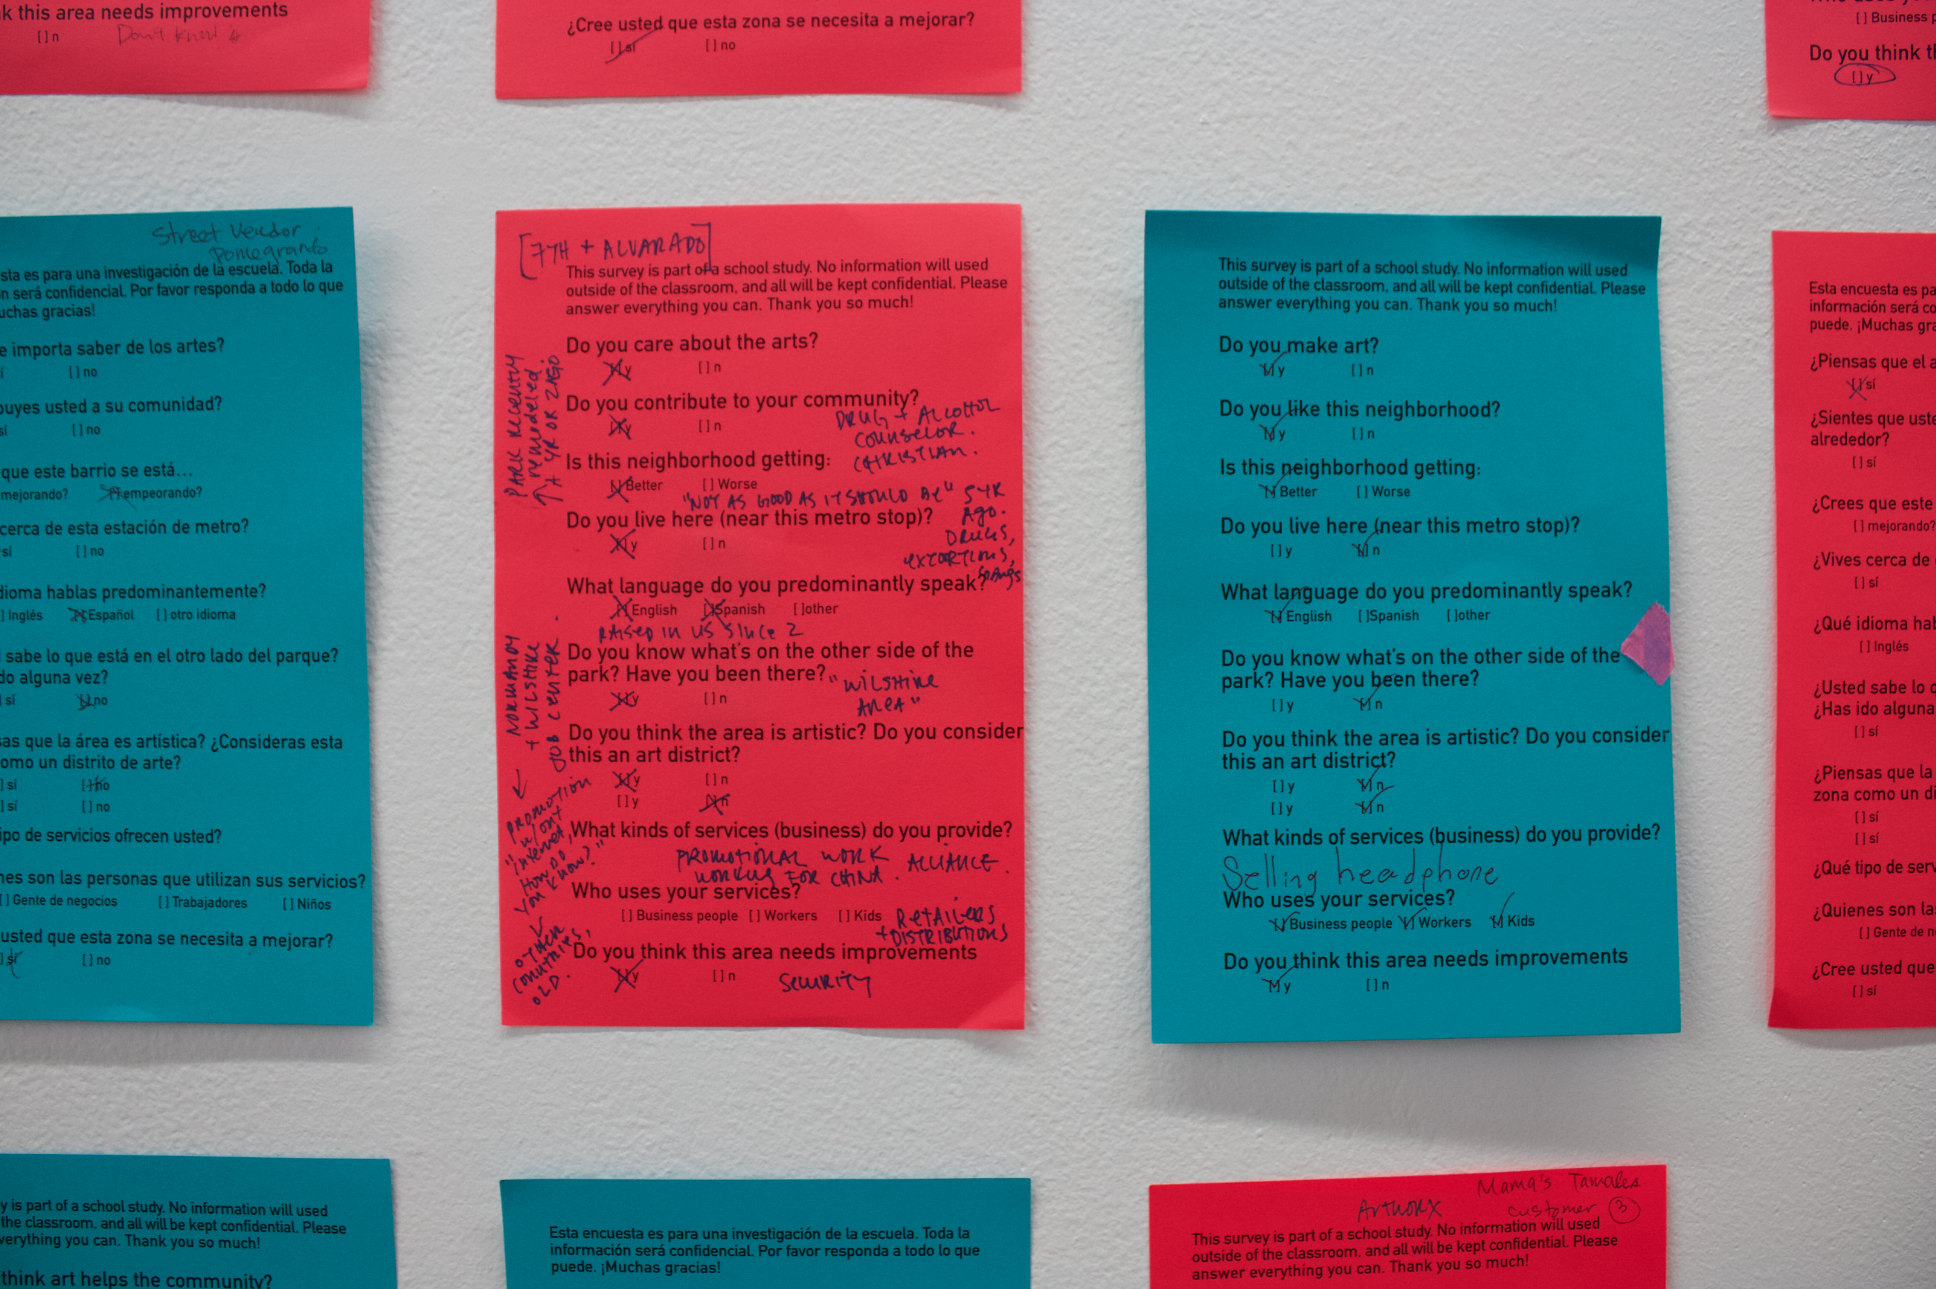 k this area needs improvements
[ ] n
Don't know
¿Cree usted que esta zona se necesita a mejorar?
[ ] sí [ ] no
[ ] Business p
Do you think th
[ ] y
Street Vendor
Pomegranate
sta es para una investigación de la escuela. Toda la
n será confidencial. Por favor responda a todo lo que
uchas gracias!
e importa saber de los artes?
í [ ] no
buyes usted a su comunidad?
sí [ ] no
que este barrio se está...
mejorando? [ ] empeorando?
cerca de esta estación de metro?
sí [ ] no
dioma hablas predominantemente?
] Inglés [ ] Español [ ] otro idioma
sabe lo que está en el otro lado del parque?
do alguna vez?
sí [ ] no
sas que la área es artística? ¿Consideras esta
omo un distrito de arte?
] sí [ ] no
] sí [ ] no
ipo de servicios ofrecen usted?
nes son las personas que utilizan sus servicios?
[ ] Gente de negocios [ ] Trabajadores [ ] Niños
usted que esta zona se necesita a mejorar?
] sí [ ] no
[7TH + ALVARADO]
This survey is part of a school study. No information will used
outside of the classroom, and all will be kept confidential. Please
answer everything you can. Thank you so much!
Do you care about the arts?
[ ] y [ ] n
Do you contribute to your community?
[ ] y [ ] n
DRUG + ALCOHOL
COUNSELOR.
CHRISTIAN.
Is this neighborhood getting:
[ ] Better [ ] Worse
"NOT AS GOOD AS IT SHOULD BE" 5YR
AGO.
DRUGS,
EXTORTIONS,
GANGS
Do you live here (near this metro stop)?
[ ] y [ ] n
What language do you predominantly speak?
[ ] English [ ] Spanish [ ] other
RAISED IN US SINCE 2
Do you know what's on the other side of the
park? Have you been there?
"WILSHIRE
AREA"
[ ] y [ ] n
Do you think the area is artistic? Do you consider
this an art district?
[ ] y [ ] n
[ ] y [ ] n
What kinds of services (business) do you provide?
PROMOTIONAL WORK ALLIANCE.
WORKING FOR CHINA.
Who uses your services?
[ ] Business people [ ] Workers [ ] Kids
RETAILERS
+ DISTRIBUTIONS
Do you think this area needs improvements
[ ] y [ ] n
SECURITY
PARK RECENTLY
remodeled.
A YR OR 2 AGO
NORMANDY
+ WILSHIRE
JOB CENTER.
PROMOTION
"w/out
internet,
HOW DO
YOU KNOW?"
OTHER
COUNTRIES,
OLD.
This survey is part of a school study. No information will used
outside of the classroom, and all will be kept confidential. Please
answer everything you can. Thank you so much!
Do you make art?
[ ] y [ ] n
Do you like this neighborhood?
[ ] y [ ] n
Is this neighborhood getting:
[ ] Better [ ] Worse
Do you live here (near this metro stop)?
[ ] y [ ] n
What language do you predominantly speak?
[ ] English [ ] Spanish [ ] other
Do you know what's on the other side of the
park? Have you been there?
[ ] y [ ] n
Do you think the area is artistic? Do you consider
this an art district?
[ ] y [ ] n
[ ] y [ ] n
What kinds of services (business) do you provide?
Selling headphone
Who uses your services?
[ ] Business people [ ] Workers [ ] Kids
Do you think this area needs improvements
[ ] y [ ] n
Esta encuesta es pa
información será co
puede. ¡Muchas gra
¿Piensas que el a
[ ] sí
¿Sientes que uste
alrededor?
[ ] sí
¿Crees que este
[ ] mejorando?
¿Vives cerca de
[ ] sí
¿Qué idioma hab
[ ] Inglés
¿Usted sabe lo q
¿Has ido alguna
[ ] sí
¿Piensas que la
zona como un di
[ ] sí
[ ] sí
¿Qué tipo de serv
¿Quienes son las
[ ] Gente de n
¿Cree usted que
[ ] sí
y is part of a school study. No information will used
the classroom, and all will be kept confidential. Please
verything you can. Thank you so much!
think art helps the community?
Esta encuesta es para una investigación de la escuela. Toda la
información será confidencial. Por favor responda a todo lo que
puede. ¡Muchas gracias!
Mama's Tamales
customer 3
This survey is part of a school study. No information will used
outside of the classroom, and all will be kept confidential. Please
answer everything you can. Thank you so much!